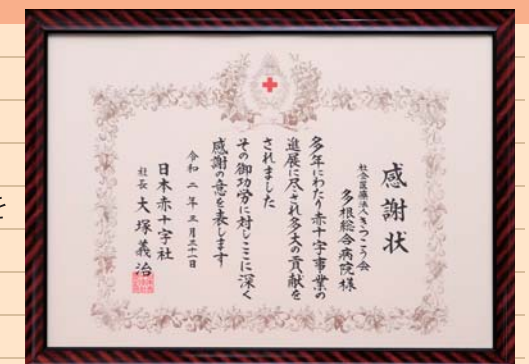 を
感謝状
社会医療法人きつこう会
多根総合病院様
多年にわたり赤十字事業の
進展に尽され多大の貢献を
されました
その御功労に対しここに深く
感謝の意を表します
令和二年三月三十一日
日本赤十字社
社長 大塚義治